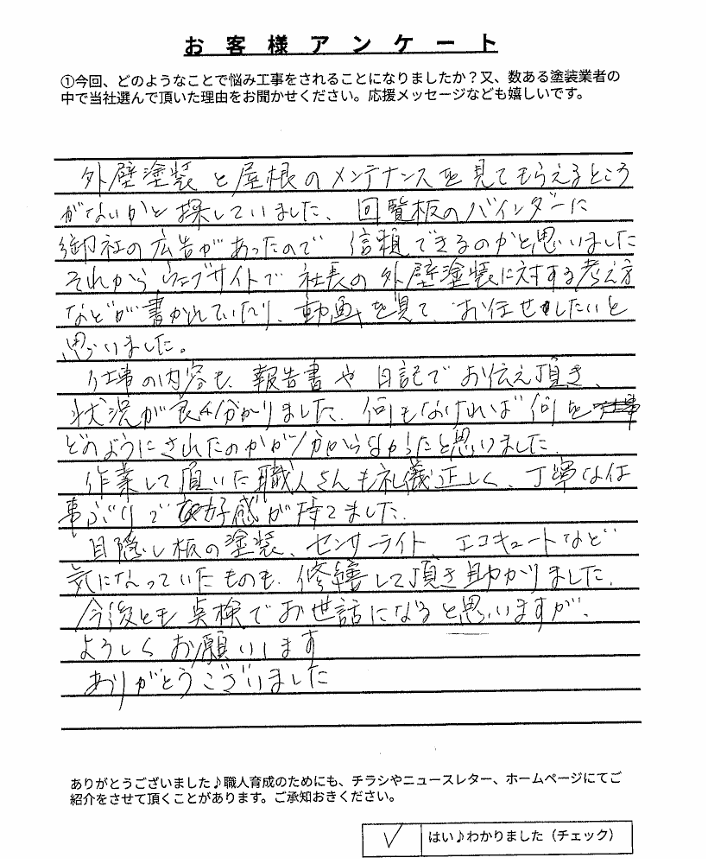 お客様アンケート
①今回、どのようなことで悩み工事をされることになりましたか？又、数ある塗装業者の
中で当社選んで頂いた理由をお聞かせください。応援メッセージなども嬉しいです。
外壁塗装と屋根のメンテナンスを見てもらえるところ
がないかと探していました、回覧板のバインダーに
御社の広告があったので 信頼できるのかと思いました
それから、ウェブサイトで 社長の外壁塗装に対する考え方
などが書かれていたり、動画を見て、お任せしたいと
思いました。
仕事の内容も、報告書や日記でお伝え頂き、
状況が良く分かりました、何もなければ何を
どのようにされたのかが分からなかったと思いました
作業して頂いた職人さんも礼儀正しく、丁寧な仕
事ぶりで好感が持てました。
目隠し板の塗装、センサーライト エコキュートなど
気になっていたものも、修繕して頂き助かりました、
今後とも点検でお世話になると思いますが、
よろしくお願いします
ありがとうございました
ありがとうございました♪職人育成のためにも、チラシやニュースレター、ホームページにてご
紹介をさせて頂くことがあります。ご承知おきください。
✓ はい♪わかりました（チェック）